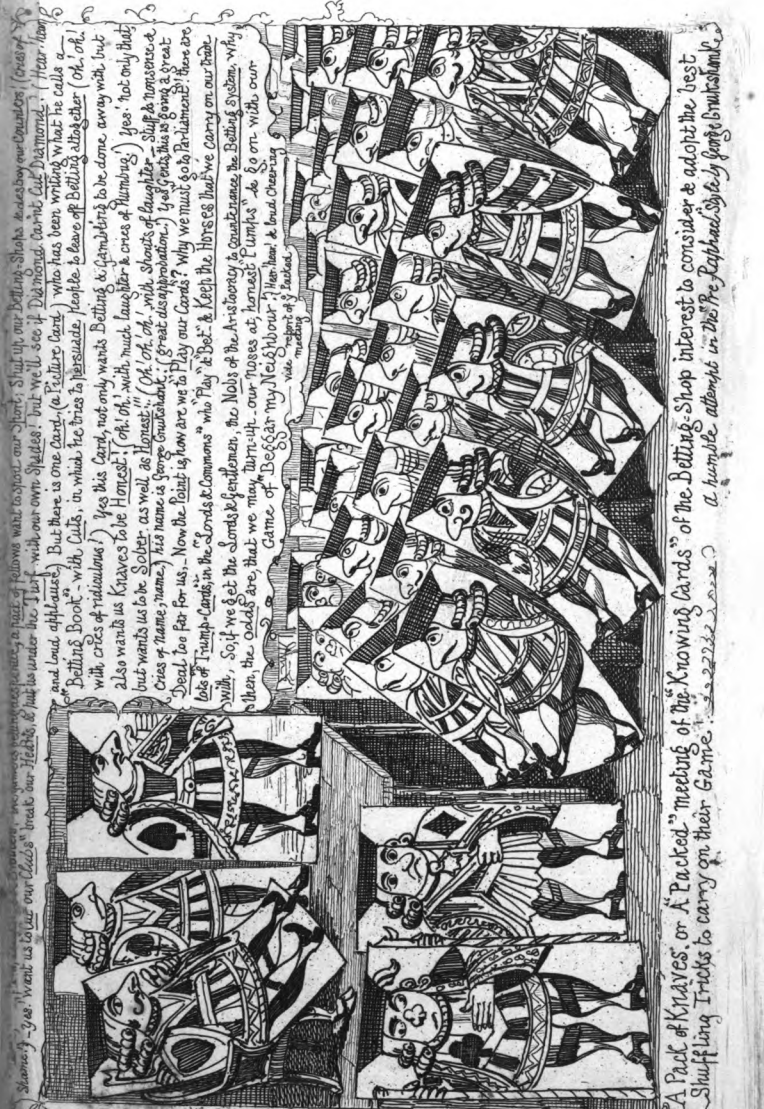 Shame!) – Yes! want us to cut our Clubs" break our Hearts, & put us under the Turf – with our own Spades! but we'll see if Diamond can't cut Diamond! (Hear! Hear!
and loud applause) But there is one Card, (a Picture Card) who has been writing what he calls a
"Betting Book" – with Cuts, in which he tries to persuade people to leave off Betting altogether (Oh! oh!
with cries of ridiculous!) Yes this Card, not only wants Betting & Gambling to be done away with, but
also wants us Knaves to be Honest! (oh! oh! with much laughter & cries of Humbug!) Yes! not only that
but wants us to be Sober as well as Honest!! (Oh! oh! oh! with shouts of laughter – Stuff & nonsense &
cries of name, name,) his name is George Cruikshank! (great disapprobation.) Yes! Gents this is going a Great
Deal too far for us – Now the Point is, how are we to Play our Cards? Why we must go to Parliament! there are
lots of Trump-Cards, in the Lords & Commons" who "Play" & Bet" & Keep the Horses that we carry on our trade
with, So, if we get the Lords & Gentlemen, the Nobs of the Aristocracy to countenance the Betting System, why
then the odds are, that we may turn-up our Noses at honest "Pumps" & Go on with our
Game of "Beggar my Neighbour" (Hear! hear! & loud Cheering
vide report of ye Packed
meeting
"A Pack of Knaves", or A "Packed" meeting of the "Knowing Cards" of the Betting-Shop interest to consider & adopt the best
Shuffling Tricks to carry on their Game.
a humble attempt in the "Pre Raphael" Style by George Cruikshank